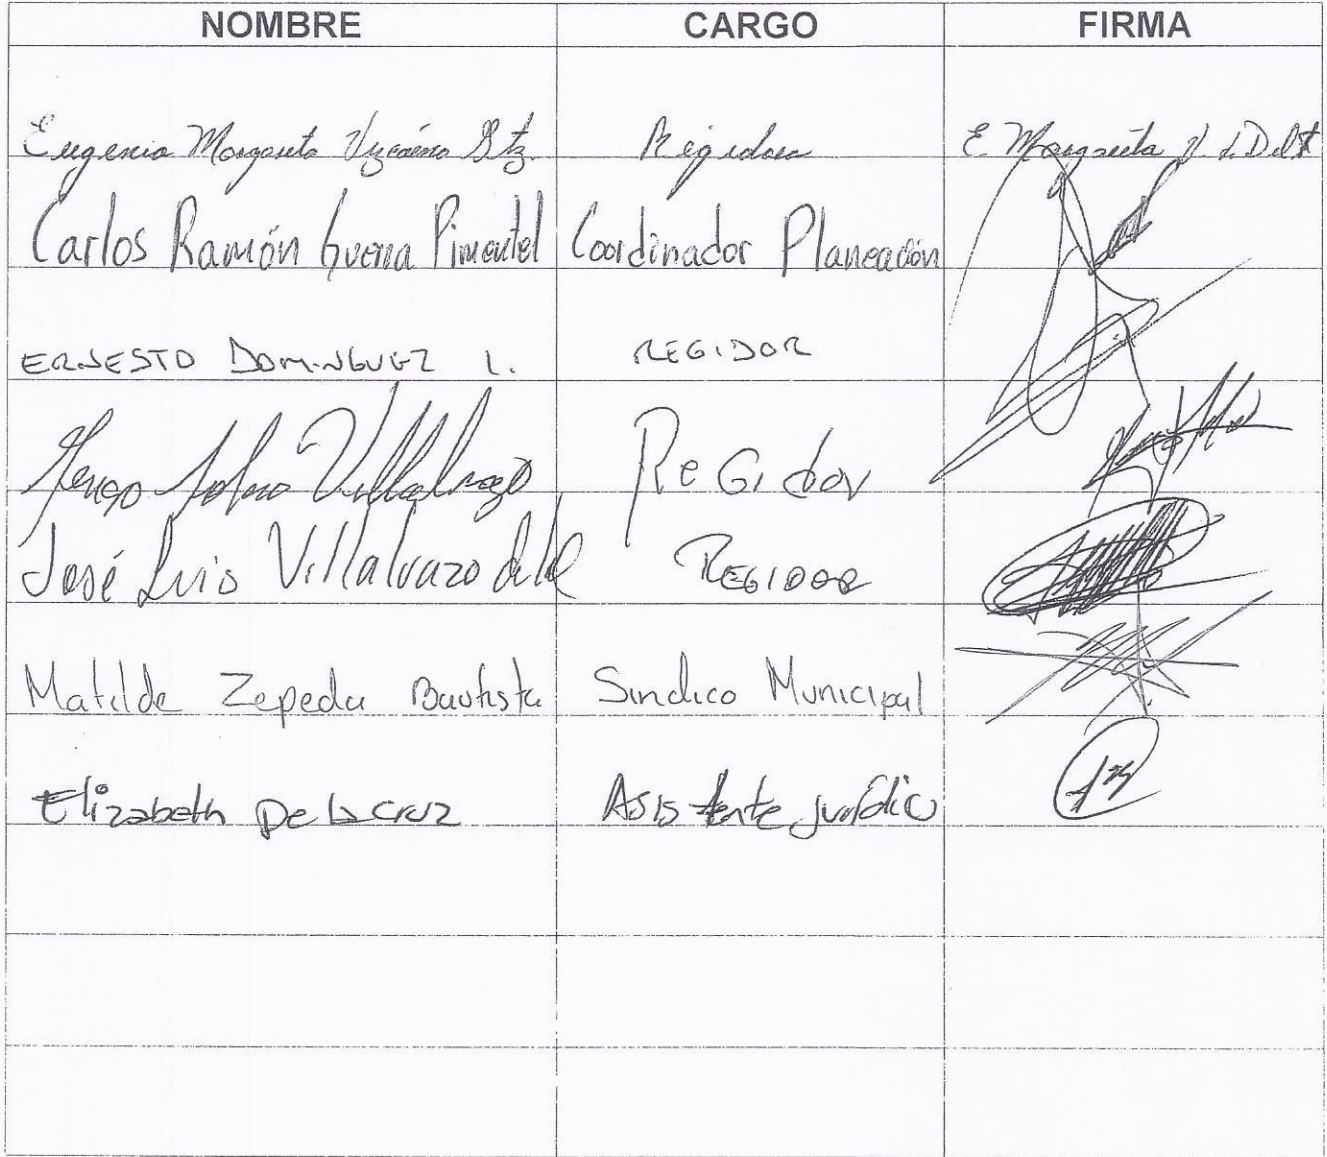 NOMBRE CARGO FIRMA
Eugenia Margarita Vizcaíno Gtz. Regidora E. Margarita V.
Carlos Ramón Guerra Pimentel Coordinador Planeación
ERNESTO DOMINGUEZ L. REGIDOR
Villalvazo ReGidor
José Luis Villalvazo de la REGIDOR
Matilde Zepeda Bautista Sindico Municipal
Elizabeth De la cruz Asistente jurídico